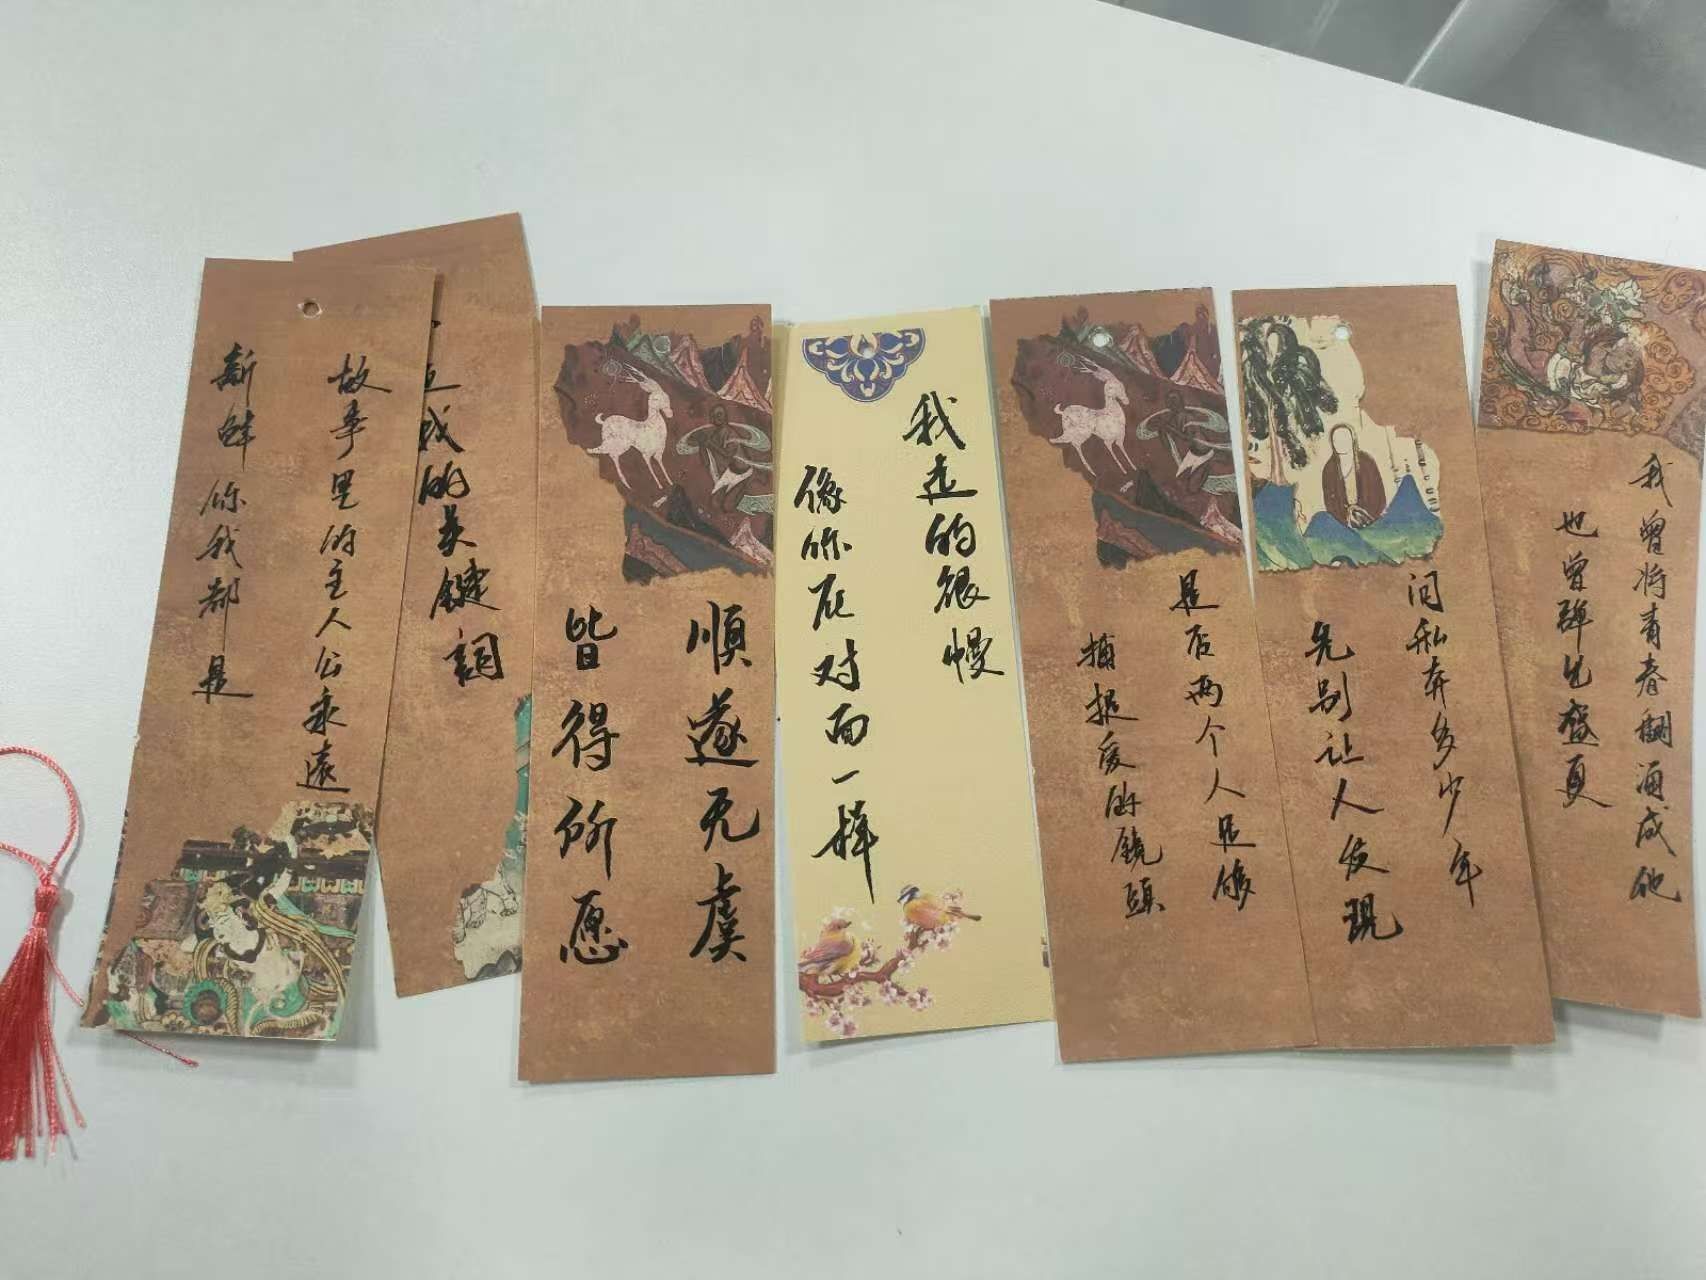 故事里的主人公永遠
新鲜你我都是
我的关键詞
順遂无虞
皆得所愿
我走的很慢
像你在对面一样
是否两个人足够
捕捉爱的鏡頭
问私奔多少年
先别让人发现
我曾将青春翻涌成她
也曾弹出盛夏